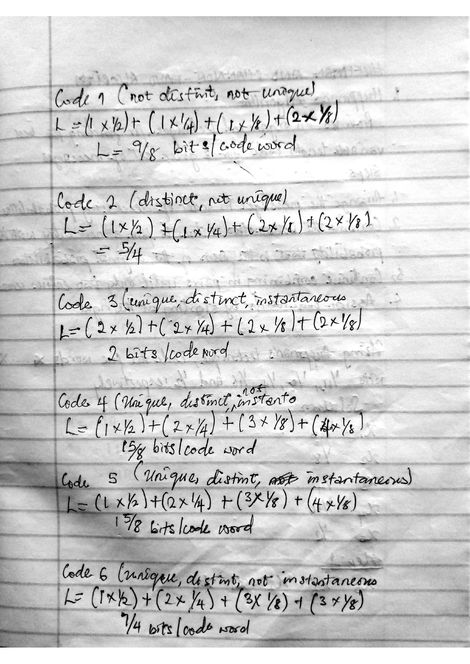 Code 1 (not distint, not unique)
L = (1 x 1/2) + (1 x 1/4) + (1 x 1/8) + (2 x 1/8)
L = 9/8 bits/code word
Code 2 (distinct, not unique)
L = (1 x 1/2) + (1 x 1/4) + (2 x 1/8) + (2 x 1/8)
= 5/4
Code 3 (unique, distinct, instantaneous
L = (2 x 1/2) + (2 x 1/4) + (2 x 1/8) + (2 x 1/8)
2 bits/code word
Code 4 (Unique, distinct, not instanto
L = (1 x 1/2) + (2 x 1/4) + (3 x 1/8) + (4 x 1/8)
15/8 bits/code word
Code 5 (Unique, distint, instantaneous)
L = (1 x 1/2) + (2 x 1/4) + (3 x 1/8) + (4 x 1/8)
15/8 bits/code word
Code 6 (unique, distint, not instantaneous
L = (1 x 1/2) + (2 x 1/4) + (3 x 1/8) + (3 x 1/8)
7/4 bits/code word